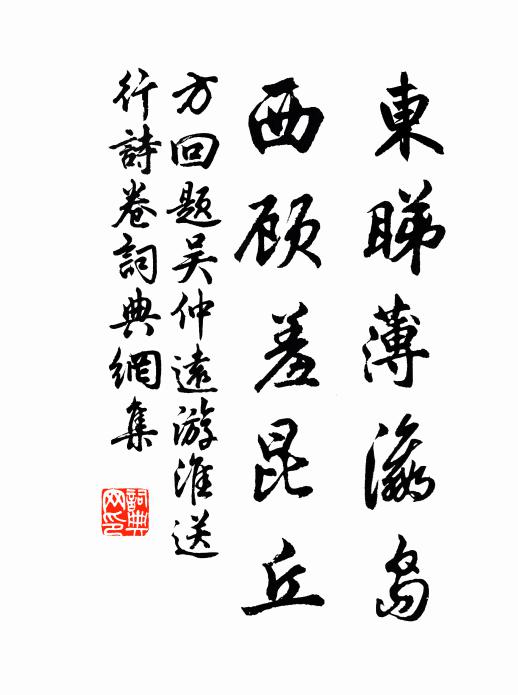 東睇薄瀛島
西顾羞昆丘
方回題吴仲遠游淮送
行詩卷詞典網集
詞典网印